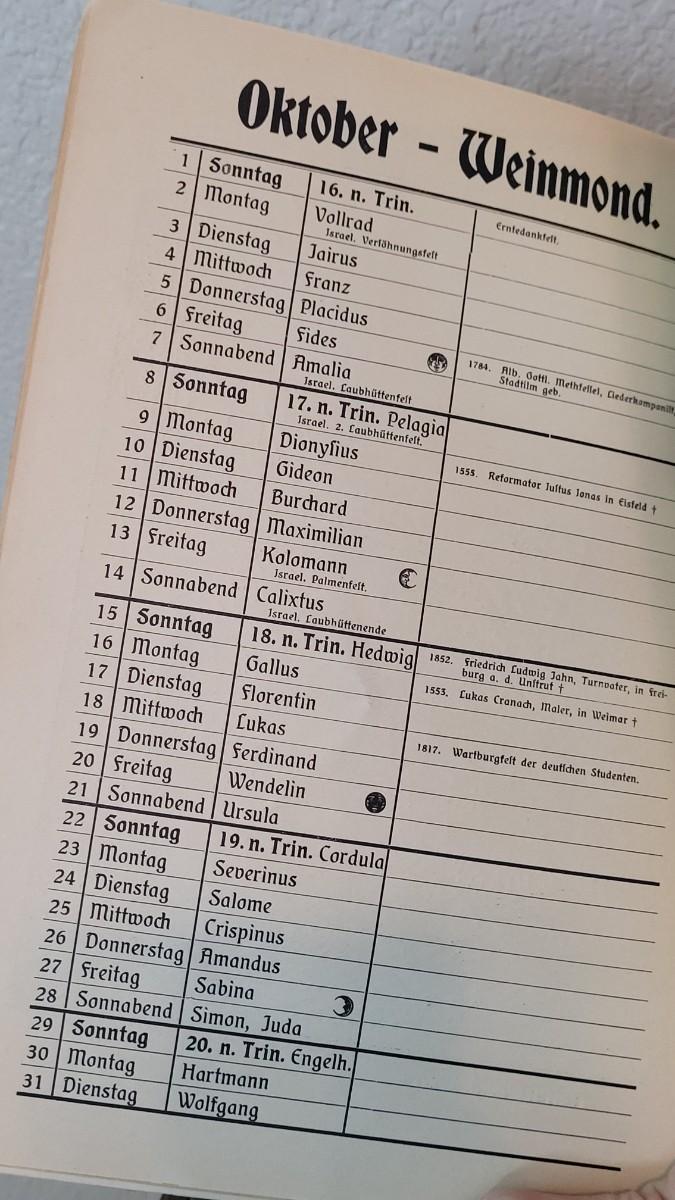 Oktober – Weinmond.
1 Sonntag 16. n. Trin. Erntedankfest.
2 Montag Vollrad
Israel. Versöhnungsfest
3 Dienstag Jairus
4 Mittwoch Franz
5 Donnerstag Placidus
6 Freitag Fides
7 Sonnabend Amalia 1784. Alb. Gottl. Methfessel, Liederkomponist,
Israel. Laubhüttenfest Stadtilm geb.
8 Sonntag 17. n. Trin. Pelagia
Israel. 2. Laubhüttenfest.
9 Montag Dionysius 1555. Reformator Justus Jonas in Eisfeld †
10 Dienstag Gideon
11 Mittwoch Burchard
12 Donnerstag Maximilian
13 Freitag Kolomann
Israel. Palmenfest.
14 Sonnabend Calixtus
Israel. Laubhüttenende
15 Sonntag 18. n. Trin. Hedwig 1852. Friedrich Ludwig Jahn, Turnvater, in Frei-
burg a. d. Unstrut †
16 Montag Gallus 1553. Lukas Cranach, Maler, in Weimar †
17 Dienstag Florentin
18 Mittwoch Lukas 1817. Wartburgfest der deutschen Studenten.
19 Donnerstag Ferdinand
20 Freitag Wendelin
21 Sonnabend Ursula
22 Sonntag 19. n. Trin. Cordula
23 Montag Severinus
24 Dienstag Salome
25 Mittwoch Crispinus
26 Donnerstag Amandus
27 Freitag Sabina
28 Sonnabend Simon, Juda
29 Sonntag 20. n. Trin. Engelh.
30 Montag Hartmann
31 Dienstag Wolfgang